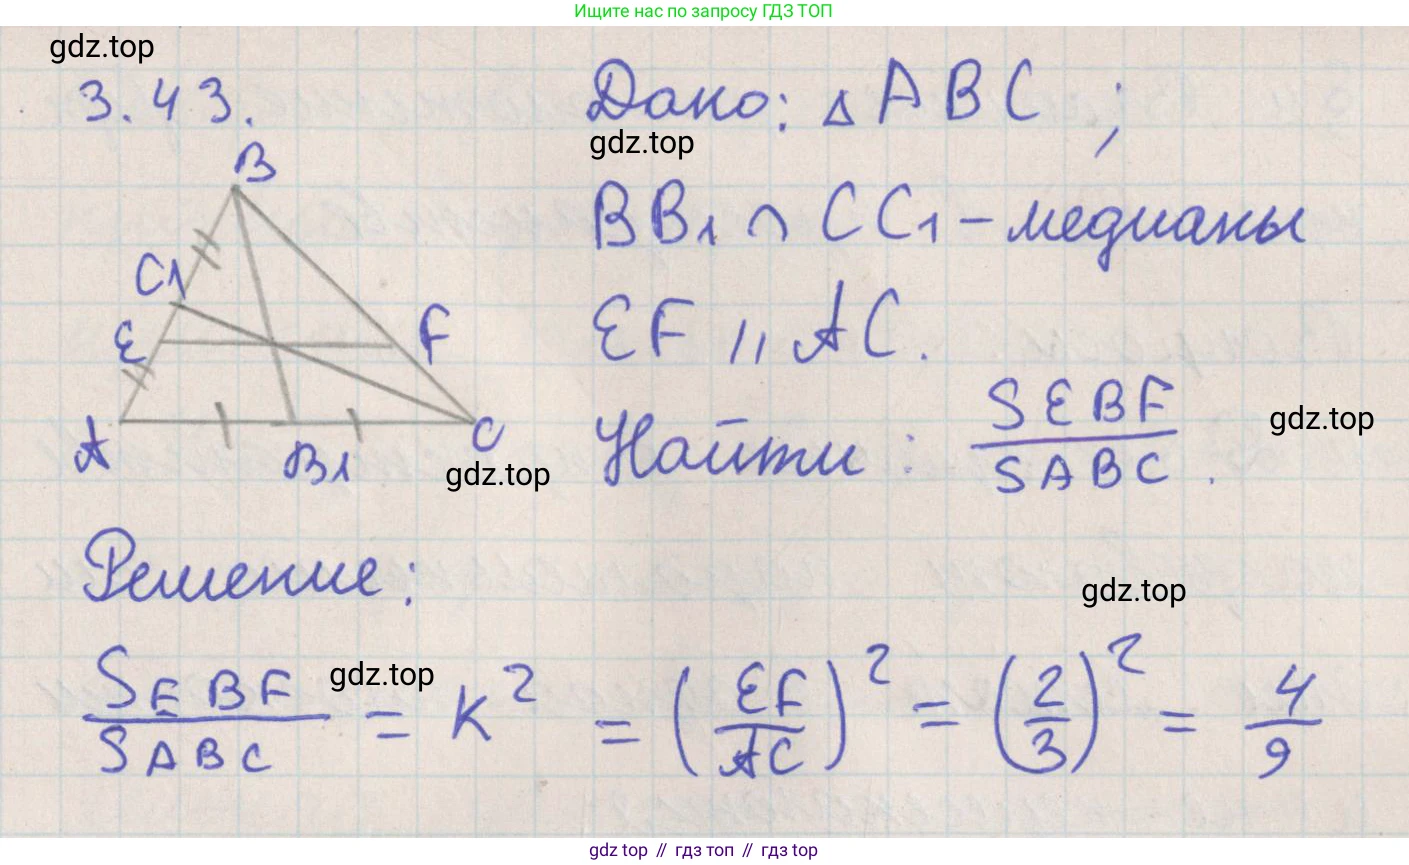 Ищите нас по запросу ГДЗ ТОП
gdz.top
3.43.
Дано: △ABC;
gdz.top
B
BB1 ∩ CC1 – медианы
C1
E
F
EF || AC.
A
B1
C
gdz.top
Найти: SEBF / SABC.
gdz.top
Решение:
gdz.top
gdz.top
SEBF / SABC = K² = (EF / AC)² = (2/3)² = 4/9
gdz top // гдз топ // gdz top